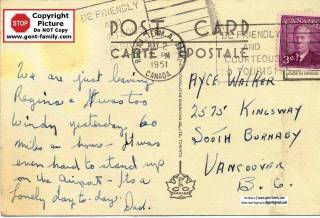 STOP
Copyright
Picture
Do NOT Copy
www.gent-family.com
BE FRIENDLY
POST CARD
CARTE POSTALE
1951
CANADA
BE FRIENDLY
AND
COURTEOUS
TOURISTS
We are just leaving
Regina & It was too
windy yesterday 60
miles an hour - It was
even hard to stand up
on the Airport - Its a
lovely day to-day. Dad.
AYCE WALKER
2575 KINGSWAY
SOUTH BURNABY
VANCOUVER
B.C.